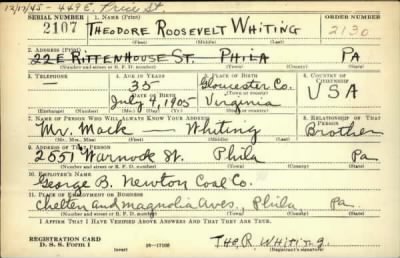 12/17/45 - 449 E. Price St.
SERIAL NUMBER 1. NAME (Print) ORDER NUMBER
2107 THEODORE ROOSEVELT WHITING 2130
2. ADDRESS (Print)
22 E RITTENHOUSE ST. PHILA PA
(Number and street or R. F. D. number) (Town) (County) (State)
3. TELEPHONE 4. AGE IN YEARS 5. PLACE OF BIRTH 6. COUNTRY OF CITIZENSHIP
35 Gloucester Co.
DATE OF BIRTH (Town or county)
July 4, 1905 Virginia USA
(Exchange) (Number) (Mo.) (Day) (Yr.) (State or country)
7. NAME OF PERSON WHO WILL ALWAYS KNOW YOUR ADDRESS 8. RELATIONSHIP OF THAT PERSON
Mr. Mack — Whiting Brother
(Mr., Mrs., Miss) (First) (Middle) (Last)
9. ADDRESS OF THAT PERSON
2551 Warnock St. Phila Pa.
(Number and street or R. F. D. number) (Town) (County) (State)
10. EMPLOYER'S NAME
George B. Newton Coal Co.
11. PLACE OF EMPLOYMENT OR BUSINESS
Chelten and Magnolia Aves., Phila Pa.
(Number and street or R. F. D. number) (Town) (County) (State)
I AFFIRM THAT I HAVE VERIFIED ABOVE ANSWERS AND THAT THEY ARE TRUE.
REGISTRATION CARD
D. S. S. Form 1 (over) 16-17105
Theo R. WHITING.
(Registrant's signature)